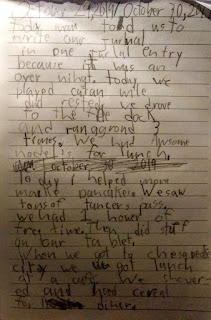 October 29, 2019/October 30, 2019
Today mom told us to
write our jurnal
in one jurnal entry
because it was an
over nihgt. today we
played catan while
dad rested. we drove
to the dock
and ranggrond 3
times. We had Awsome
noodles for lunch.
October 30th 2019
today I helped mom
make pancakes. We saw
tons of tancers pass.
we had 1 hower of
free time. Then did stuff
on our tablet.
When we got to chesapeake
city we got lunch
at a caffe. We shower-
ed and had cereal
for diner.